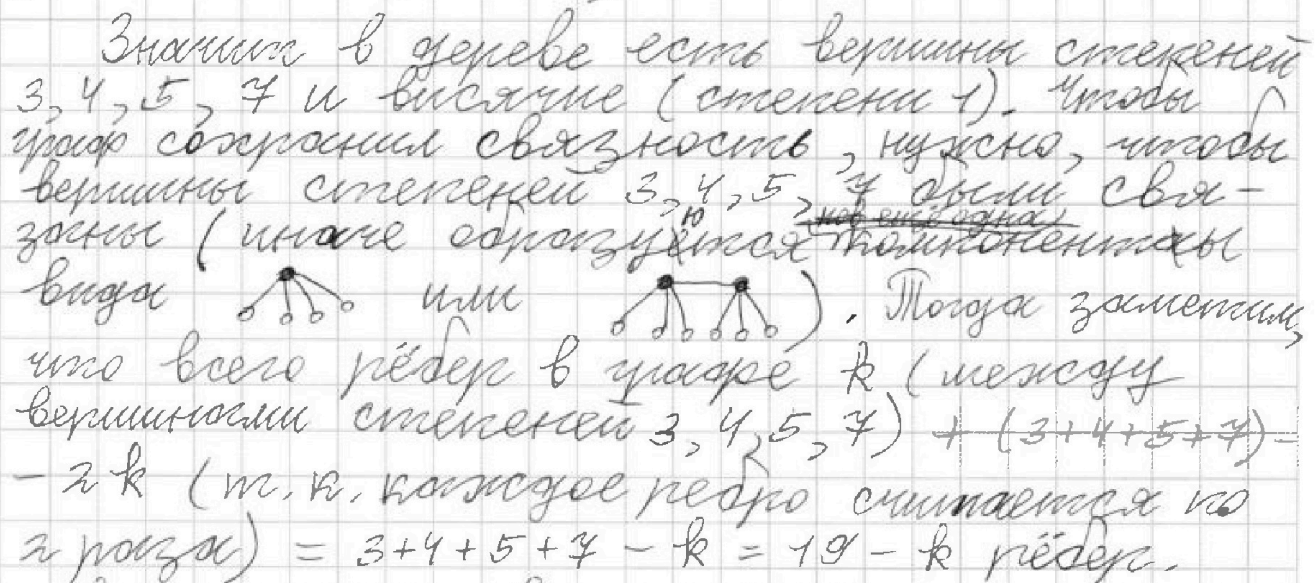 Значит в дереве есть вершины степеней
3, 4, 5, 7 и висячие (степени 1). Чтобы
граф сохранил связность, нужно, чтобы
вершины степеней 3, 4, 5, 7 были свя-
заны (иначе образуются компоненты
вида или ). Тогда заметим,
что всего рёбер в графе k (между
вершинами степеней 3, 4, 5, 7) + (3+4+5+7) -
- 2k (т.к. каждое ребро считается по
2 раза) = 3+4+5+7 - k = 19 - k рёбер.